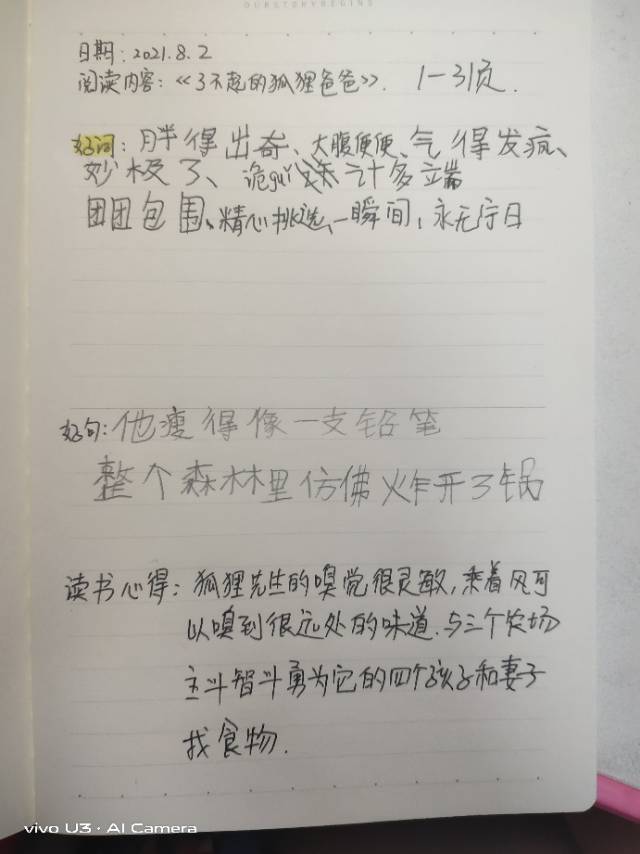 OUR STORY BEGINS
日期：2021.8.2
阅读内容：《了不起的狐狸爸爸》. 1-31页.
好词：胖得出奇、大腹便便、气得发疯、
妙极了、诡guǐ计多端
团团包围、精心挑选、一瞬间，永无宁日
好句：他瘦得像一支铅笔
整个森林里仿佛炸开了锅
读书心得：狐狸先生的嗅觉很灵敏，乘着风可
以嗅到很远处的味道.与三个农场
主斗智斗勇为它的四个孩子和妻子
找食物.
vivo U3·AI Camera